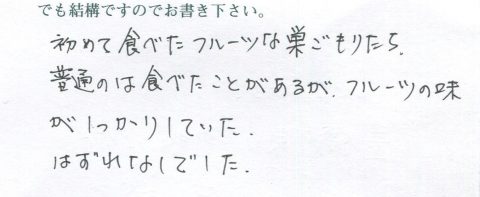 でも結構ですのでお書き下さい。
初めて食べたフルーツな巣ごもりたち.
普通のは食べたことがあるが、フルーツの味
がしっかりしていた.
はずれなしでした.